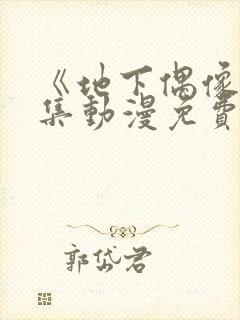 《地下偶像
集動漫免費
郭岱君